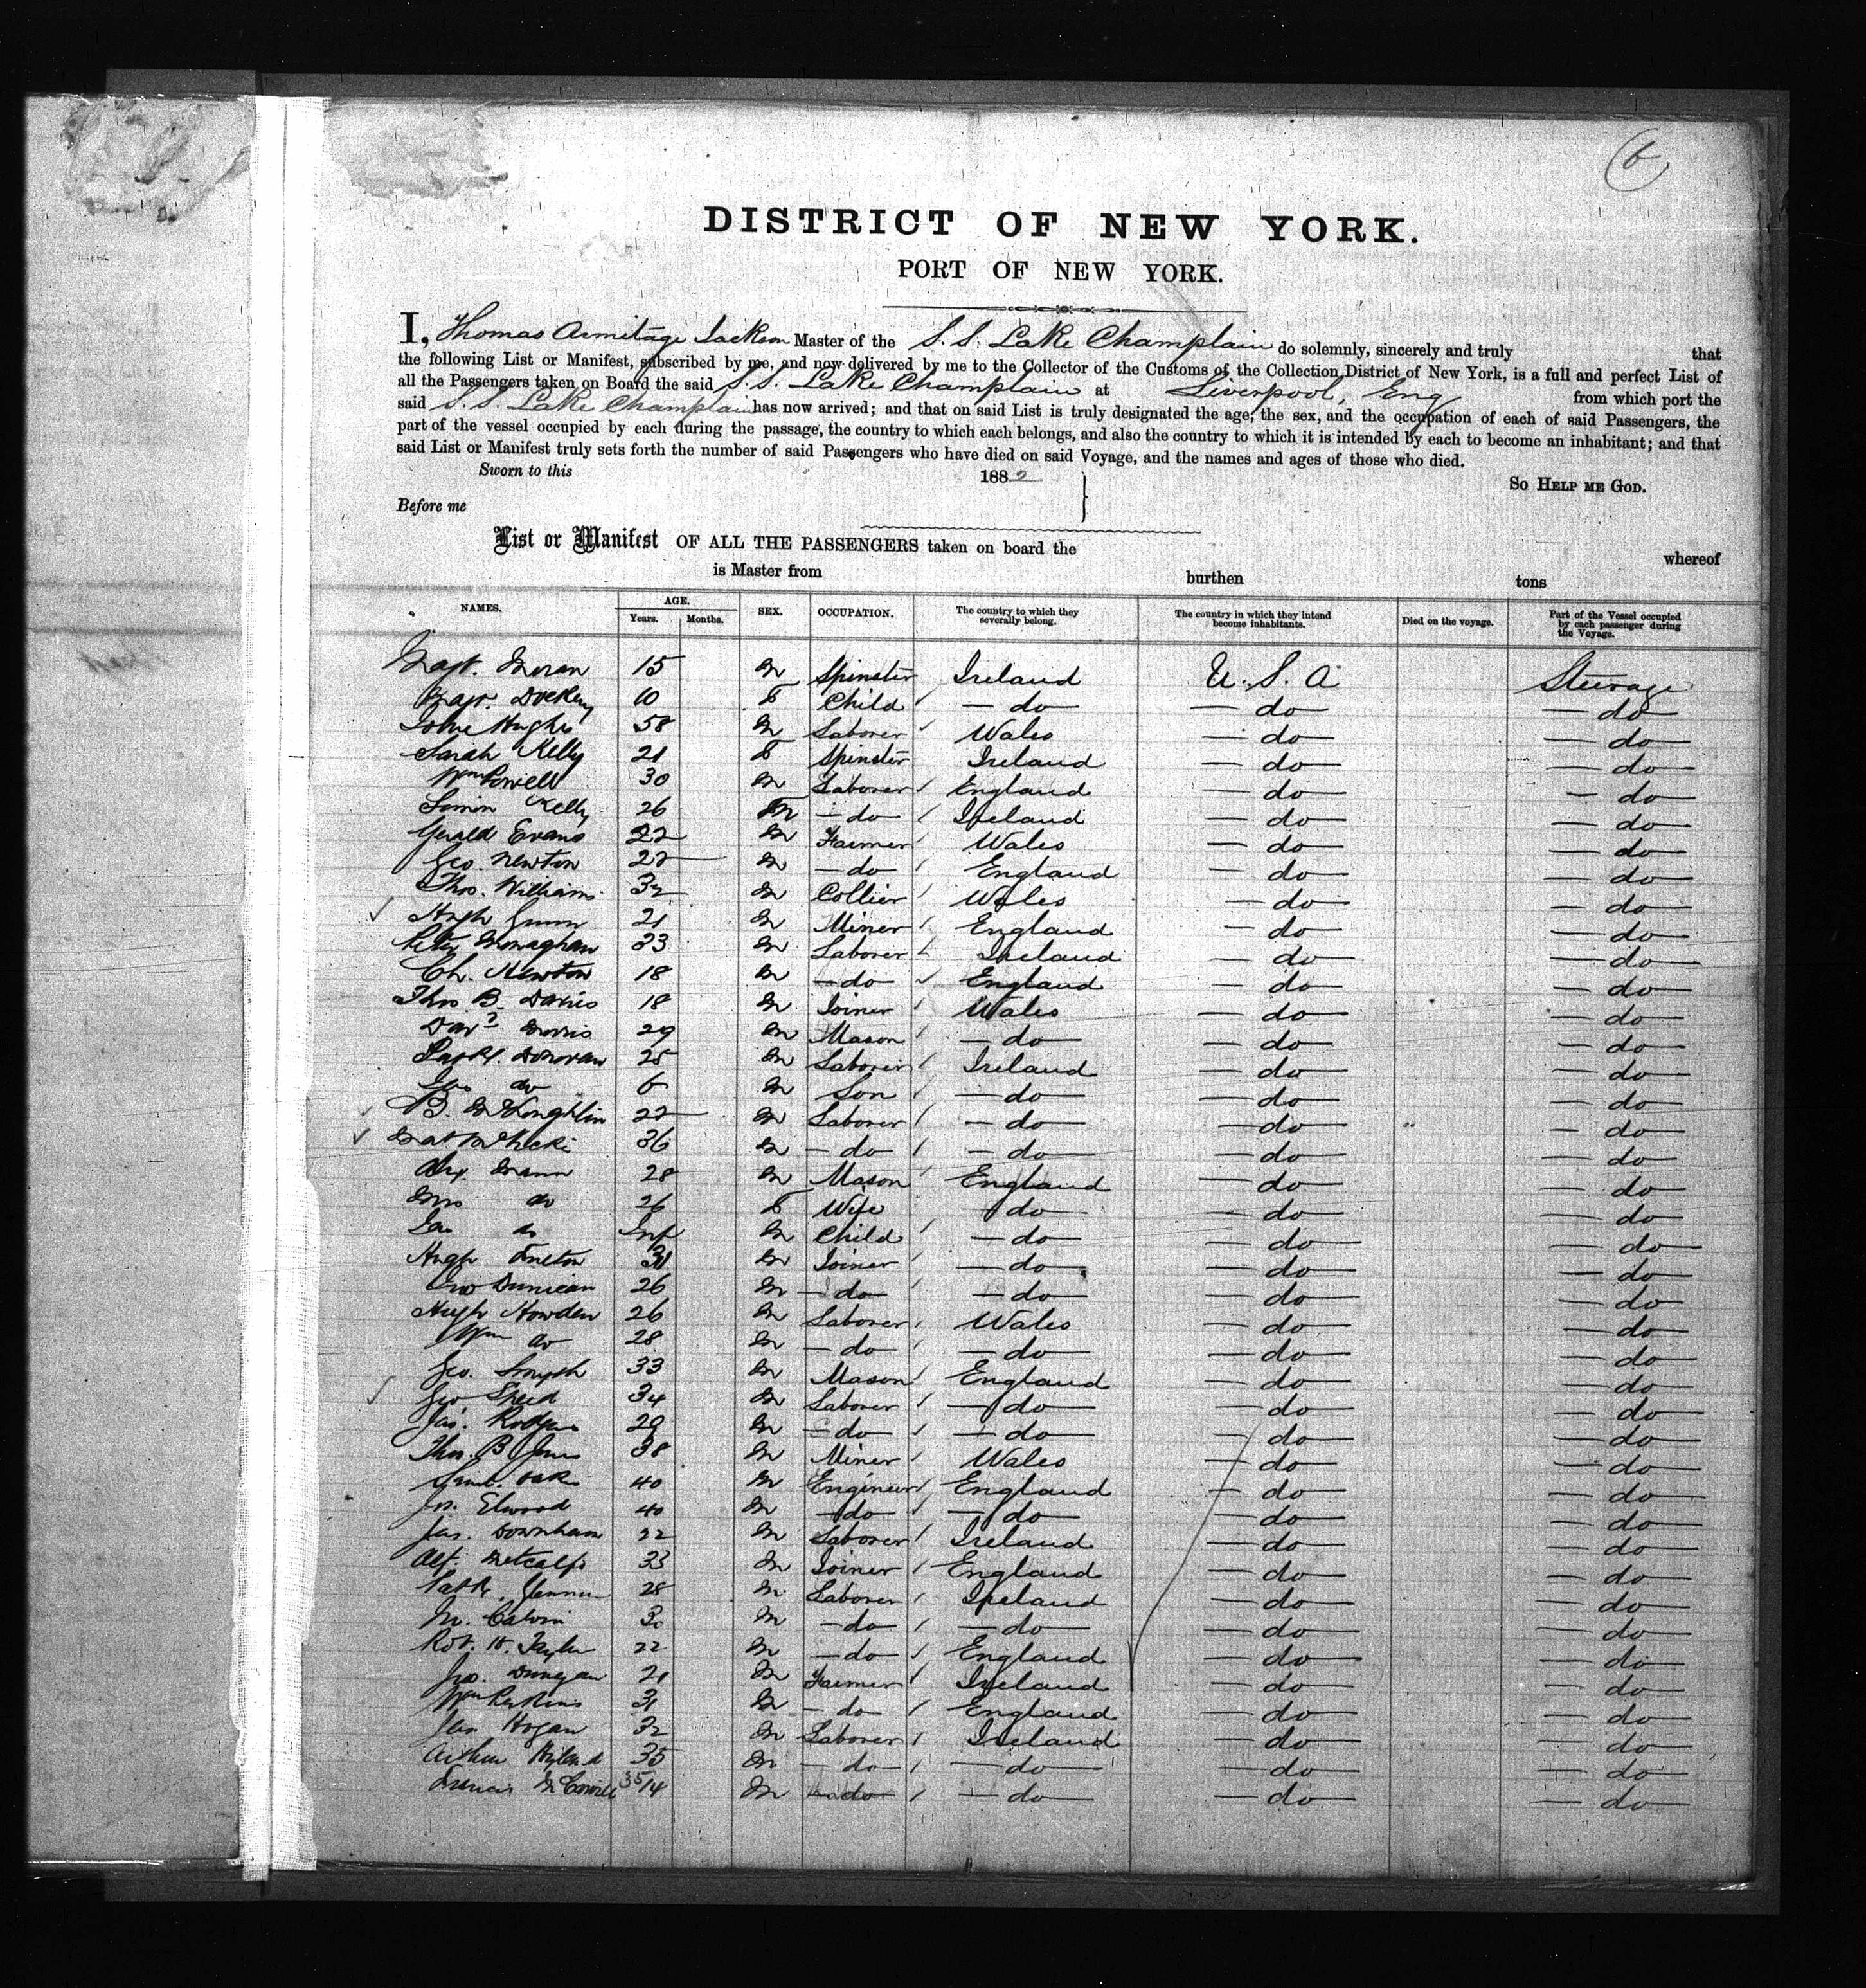 6
DISTRICT OF NEW YORK.
PORT OF NEW YORK.
I, Thomas Armitage Jackson Master of the S.S. Lake Champlain do solemnly, sincerely and truly that
the following List or Manifest, subscribed by me, and now delivered by me to the Collector of the Customs of the Collection District of New York, is a full and perfect List of
all the Passengers taken on Board the said S.S. Lake Champlain at Liverpool, Eng from which port the
said S.S. Lake Champlain has now arrived; and that on said List is truly designated the age, the sex, and the occupation of each of said Passengers, the
part of the vessel occupied by each during the passage, the country to which each belongs, and also the country to which it is intended by each to become an inhabitant; and that
said List or Manifest truly sets forth the number of said Passengers who have died on said Voyage, and the names and ages of those who died.
Sworn to this 1882 So HELP ME GOD.
Before me
List or Manifest OF ALL THE PASSENGERS taken on board the whereof
is Master from burthen tons
NAMES. AGE. Years. Months. SEX. OCCUPATION. The country to which they severally belong. The country in which they intend become inhabitants. Died on the voyage. Part of the Vessel occupied by each passenger during the Voyage.
Magt. Moran 15 M Spinster Ireland U.S.A Steerage
Magt. Dockery 10 F Child do do do
John Hughes 58 M Laborer Wales do do
Sarah Kelly 21 F Spinster Ireland do do
Wm Powell 30 M Laborer England do do
Simon Kelly 26 M do Ireland do do
Gerald Evans 22 M Farmer Wales do do
Geo. Newton 22 M do England do do
Thos. Williams 32 M Collier Wales do do
Hugh Gunn 21 M Miner England do do
Peter Monaghan 23 M Laborer Ireland do do
Ch. Newton 18 M do England do do
Thos B. Davies 18 M Joiner Wales do do
Davd Morris 29 M Mason do do do
Patk. Donovan 25 M Laborer Ireland do do
do 6 M Son do do do
B. McLoughlin 22 M Laborer do do do
36 M do do do do
Alex. Mann 28 M Mason England do do
Mrs do 26 F Wife do do do
do Inf M Child do do do
Hugh 31 M Joiner do do do
Duncan 26 M do do do do
Hugh Howden 26 M Laborer Wales do do
Wm do 28 M do do do do
Geo. Smyth 33 M Mason England do do
Geo 34 M Laborer do do do
Jas. Rodgers 29 M do do do do
Thos. B Jones 38 M Miner Wales do do
Saml. Oak 40 M Engineer England do do
Jos. Elwood 40 M do do do do
Jas. Downham 22 M Laborer Ireland do do
Alf. Metcalfe 33 M Joiner England do do
Patk. 28 M Laborer Ireland do do
M. Calvin 30 M do do do do
Rob. H. Taylor 22 M do England do do
Jno. Dunegan 21 M Farmer Ireland do do
Wm Perkins 31 M do England do do
Jas Hogan 32 M Laborer Ireland do do
Arthur Hyland 35 M do do do do
Francis 35 14 M do do do do